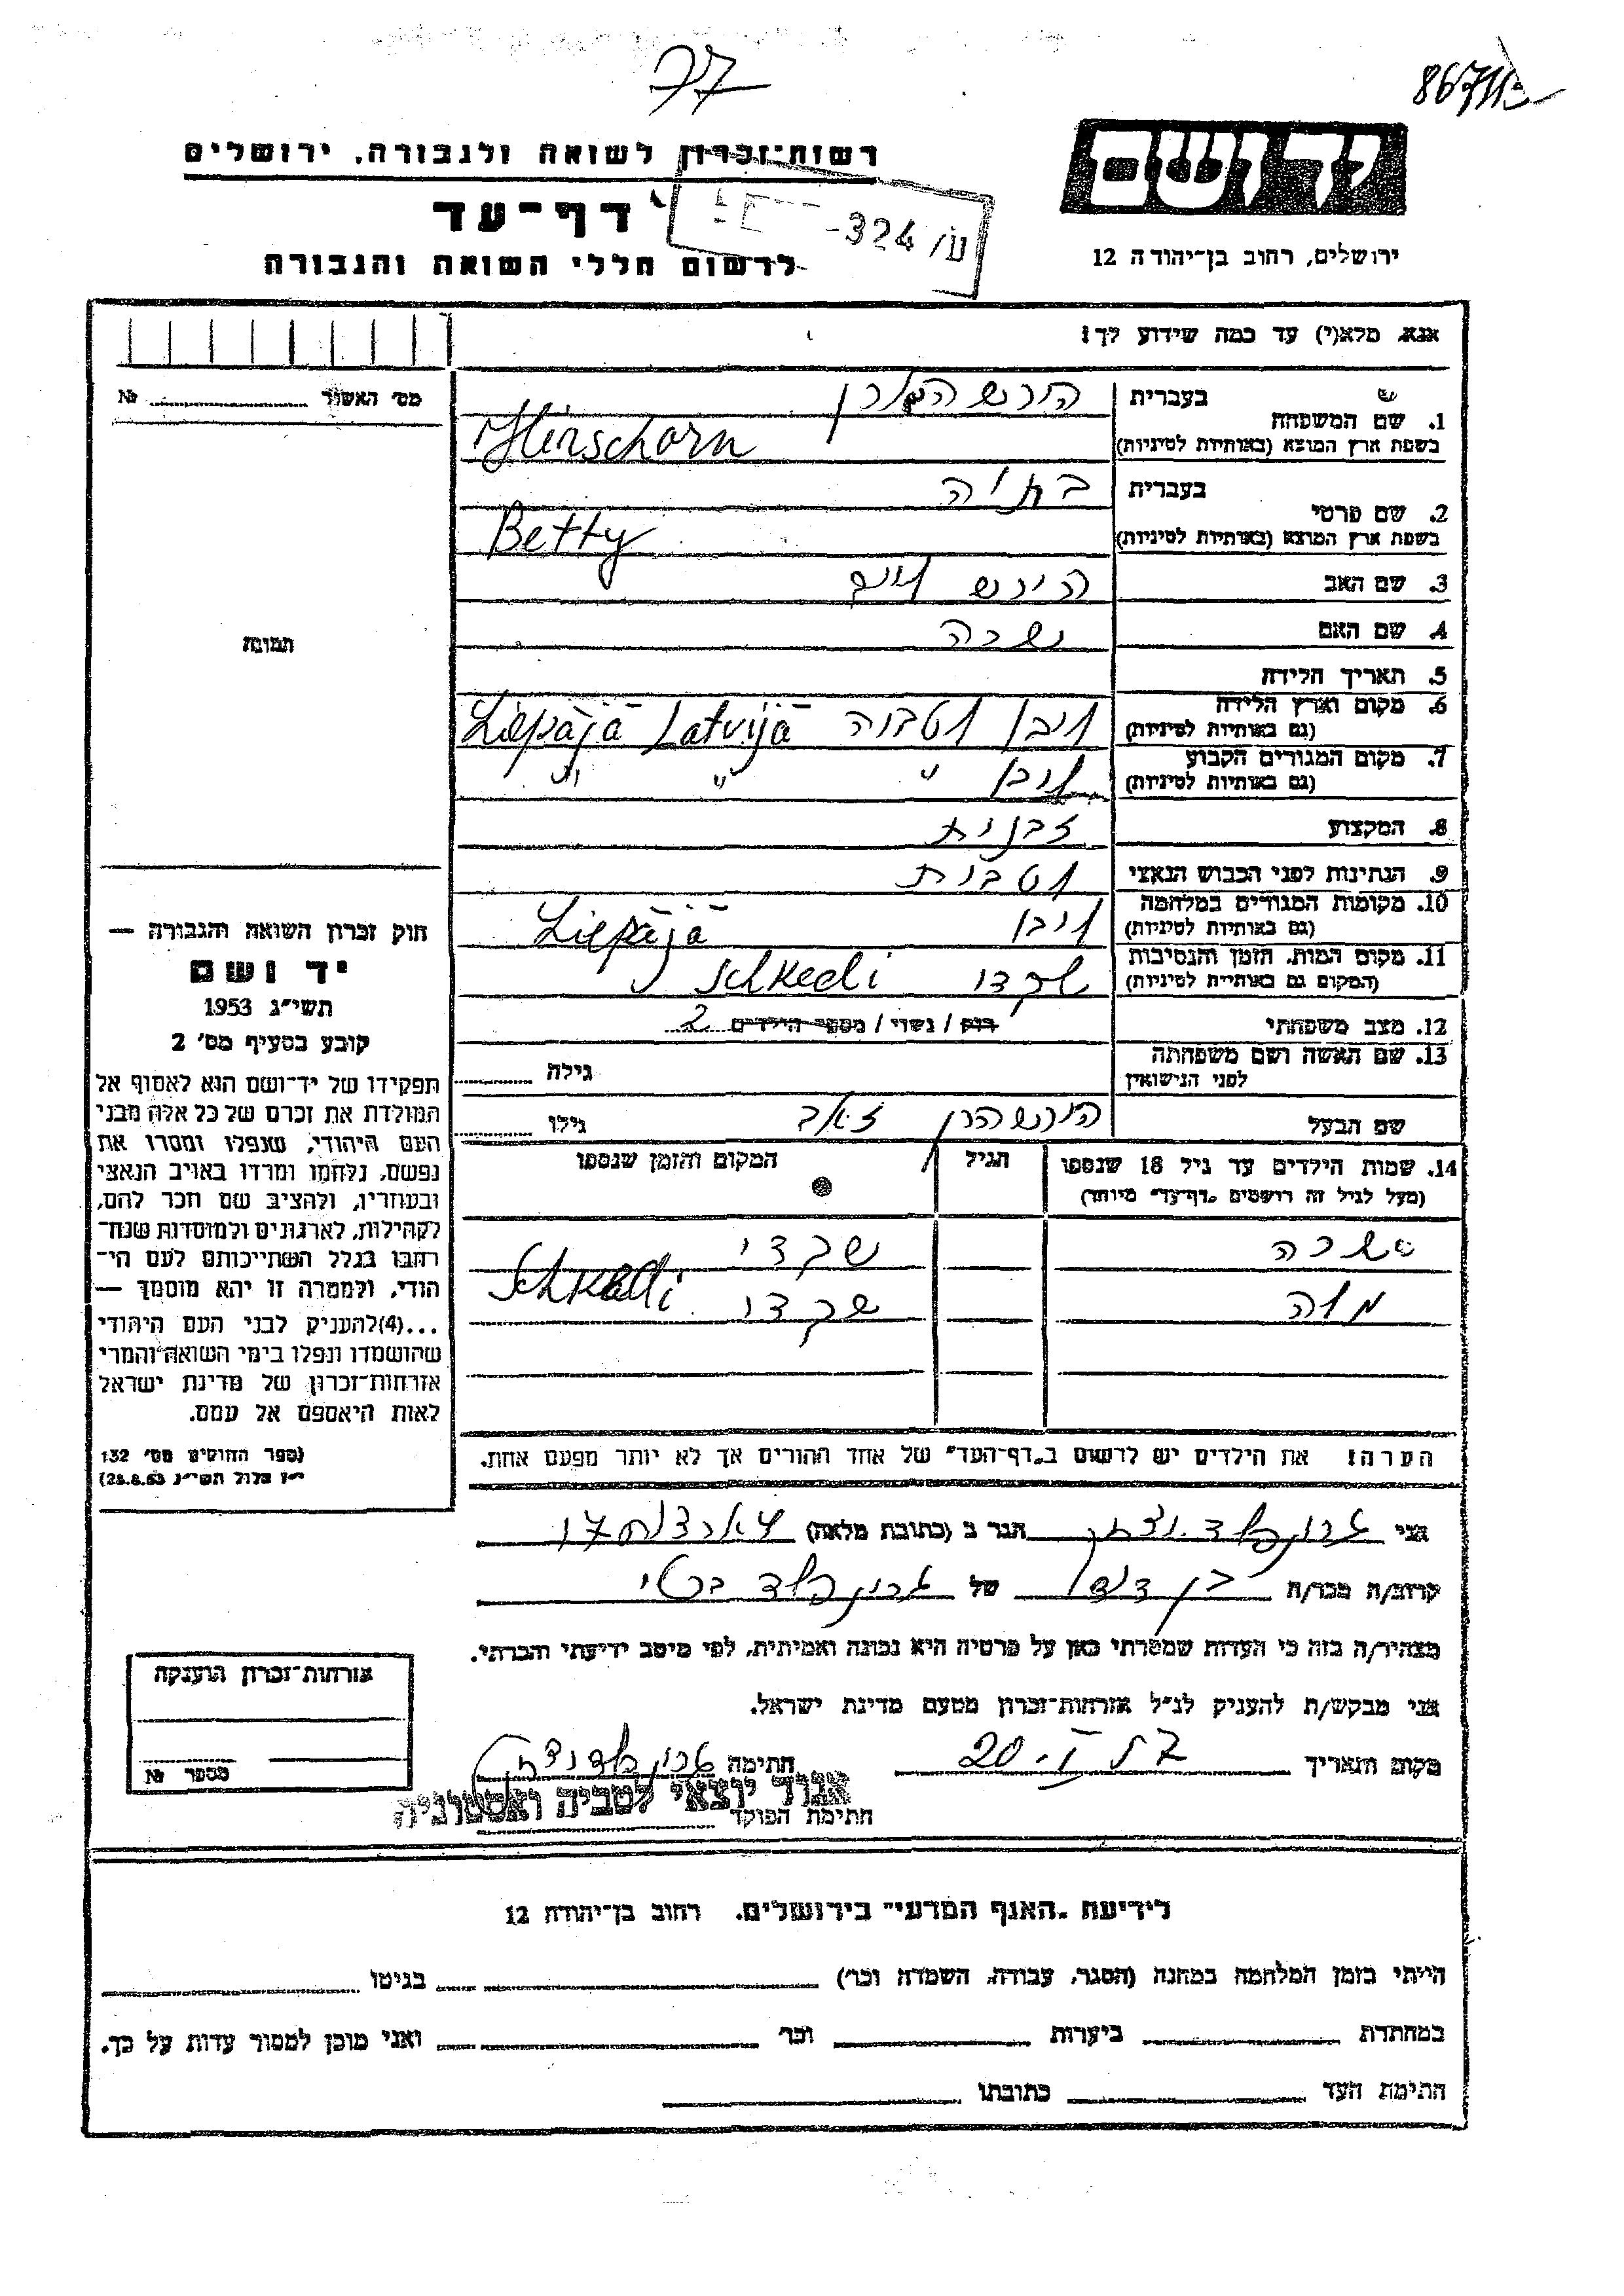 77
867/113
רשות־זכרון לשואה ולגבורה, ירושלים
דף־עד
לרשום חללי השואה והגבורה
ע/ 324-
יד ושם
ירושלים, רחוב בן־יהודה 12
אנא, מלא(י) עד כמה שידוע לך!
מס' האשור № ............
בעברית הירשהורן
1. שם המשפחה
בשפת ארץ המוצא (באותיות לטיניות) Hirschorn
בעברית בתיה
2. שם פרטי
בשפת ארץ המוצא (באותיות לטיניות) Betty
3. שם האב הירש
4. שם האם
5. תאריך הלידה
6. מקום וארץ הלידה
(גם באותיות לטיניות) ליבו לטביה Liepājā Latvijā
7. מקום המגורים הקבוע
(גם באותיות לטיניות) ליבו " " "
8. המקצוע זבנית
9. הנתינות לפני הכבוש הנאצי לטבית
10. מקומות המגורים במלחמה
(גם באותיות לטיניות) ליבו Liepājā
11. מקום המות, הזמן והנסיבות
(המקום גם באותיות לטיניות) שקדי Schkedi
12. מצב משפחתי רווק / נשוי / מספר הילדים 2
13. שם האשה ושם משפחתה
לפני הנישואין גילה ............
שם הבעל הירשהרן זאב גילו ............
14. שמות הילדים עד גיל 18 שנספו הגיל המקום והזמן שנספו
(מעל לגיל זה רושמים „דף־עד" מיוחד)
שרה שקדי
שקדי Schkedi
הערה! את הילדים יש לרשום ב„דף־העד" של אחד ההורים אך לא יותר מפעם אחת.
תמונה
חוק זכרון השואה והגבורה —
יד ושם
תשי"ג 1953
קובע בסעיף מס' 2
תפקידו של יד־ושם הוא לאסוף אל
המולדת את זכרם של כל אלה מבני
העם היהודי, שנפלו ומסרו את
נפשם, נלחמו ומרדו באויב הנאצי
ובעוזריו, ולהציב שם וזכר להם,
לקהילות, לארגונים ולמוסדות שנח־
רבו בגלל השתייכותם לעם הי־
הודי, ולמטרה זו יהא מוסמך —
...(4) להעניק לבני העם היהודי
שהושמדו ונפלו בימי השואה והמרי
אזרחות־זכרון של מדינת ישראל
לאות היאספם אל עמם.
(ספר החוקים מס' 132
י"ז אלול תשי"ג 28.8.53)
אני גרונפלד הגר ב (כתובת מלאה) 17
קרוב/ה מכר/ה בן דוד של גרונפלד בטי
מצהיר/ה בזה כי העדות שמסרתי כאן על פרטיה היא נכונה ואמיתית, לפי מיטב ידיעתי והכרתי.
אני מבקש/ת להעניק לנ"ל אזרחות־זכרון מטעם מדינת ישראל.
מקום ותאריך 20.I.57 חתימה גרונפלד
אגוד יוצאי לטביה ואסטוניה
חתימת הפוקד
אזרחות־זכרון הוענקה
מספר №
לידיעת „האגף המדעי" בירושלים, רחוב בן־יהודה 12
הייתי בזמן המלחמה במחנה (הסגר, עבודה, השמדה וכו') בגיטו
במחתרת ביערות וכו' ואני מוכן למסור עדות על כך.
חתימת העד כתובתו